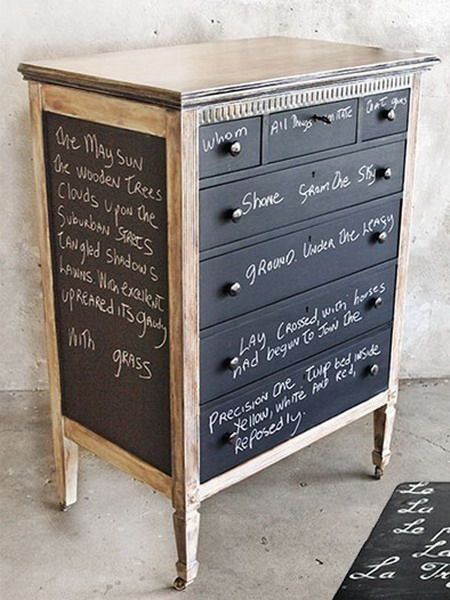 The May sun
the wooden trees
Clouds upon the
Suburban streets
tangled shadows
Lawns. With excellent
upreared its gawdy
With grass
Whom
All Things imitate
that gives
Shone from the sky
GROUND. Under the leafy
LAY crossed, with horses
had begun to join the
PRECISION the Tulip bed inside
Yellow, white AND Red,
Reposedly.
Le
La
Le p
La
La Tr